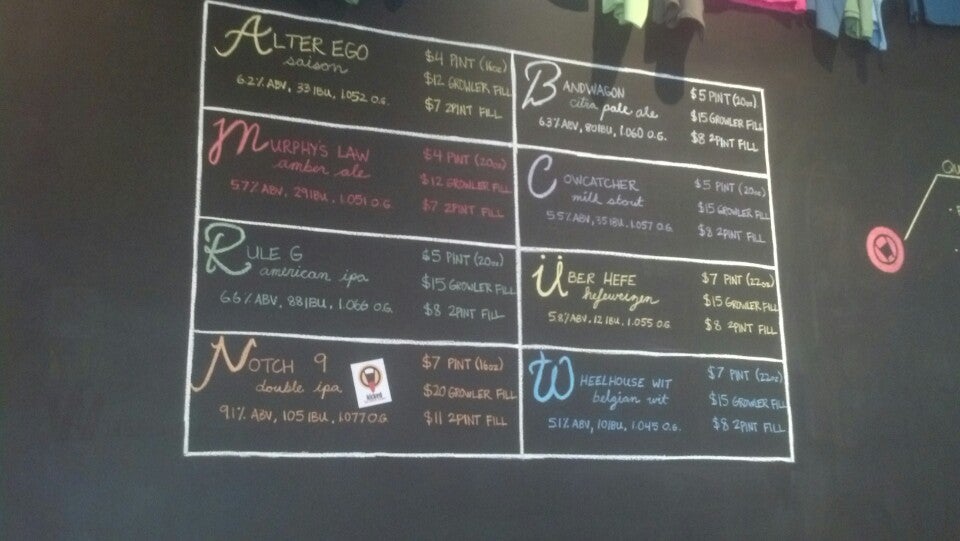 ALTER EGO
saison
6.2% ABV, 33 IBU, 1.052 O.G.
$4 PINT (16oz)
$12 GROWLER FILL
$7 2PINT FILL
MURPHY'S LAW
amber ale
5.7% ABV, 29 IBU, 1.051 O.G.
$4 PINT (20oz)
$12 GROWLER FILL
$7 2PINT FILL
RULE G
american ipa
6.6% ABV, 88 IBU, 1.066 O.G.
$5 PINT (20oz)
$15 GROWLER FILL
$8 2PINT FILL
NOTCH 9
double ipa
9.1% ABV, 105 IBU, 1.077 O.G.
$7 PINT (16oz)
$20 GROWLER FILL
$11 2PINT FILL
BANDWAGON
citra pale ale
6.3% ABV, 80 IBU, 1.060 O.G.
$5 PINT (20oz)
$15 GROWLER FILL
$8 2PINT FILL
COWCATCHER
milk stout
5.5% ABV, 35 IBU, 1.057 O.G.
$5 PINT (20oz)
$15 GROWLER FILL
$8 2PINT FILL
ÜBER HEFE
hefeweizen
5.8% ABV, 12 IBU, 1.055 O.G.
$7 PINT (22oz)
$15 GROWLER FILL
$8 2PINT FILL
WHEELHOUSE WIT
belgian wit
5.1% ABV, 10 IBU, 1.045 O.G.
$7 PINT (22oz)
$15 GROWLER FILL
$8 2PINT FILL